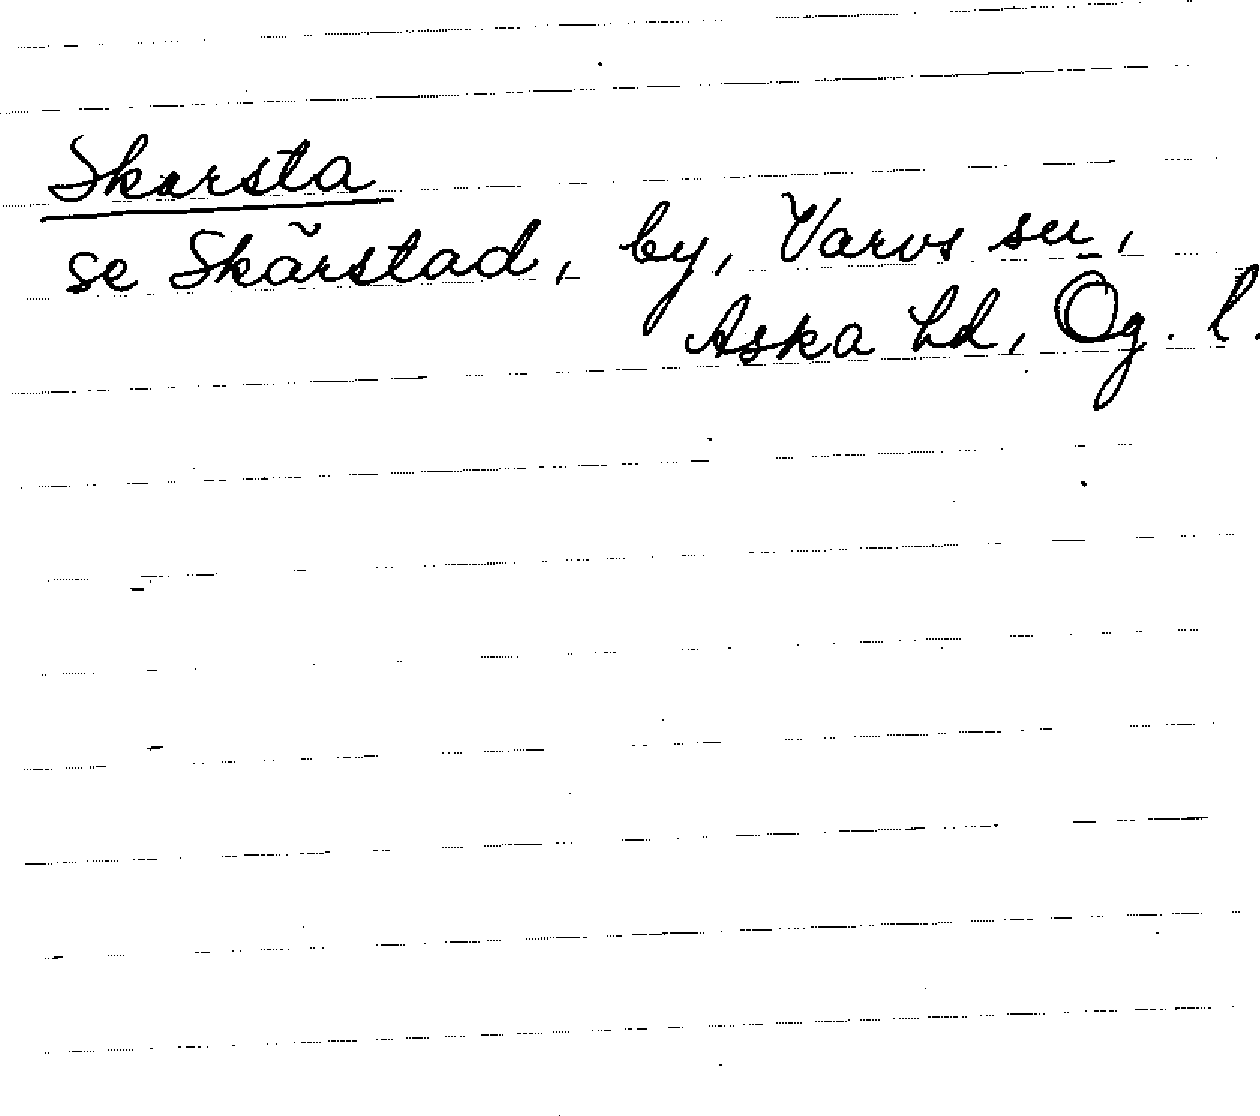 Skarsta
se Skärstad, by, Varvs sn,
Aska hd, Ög. l.